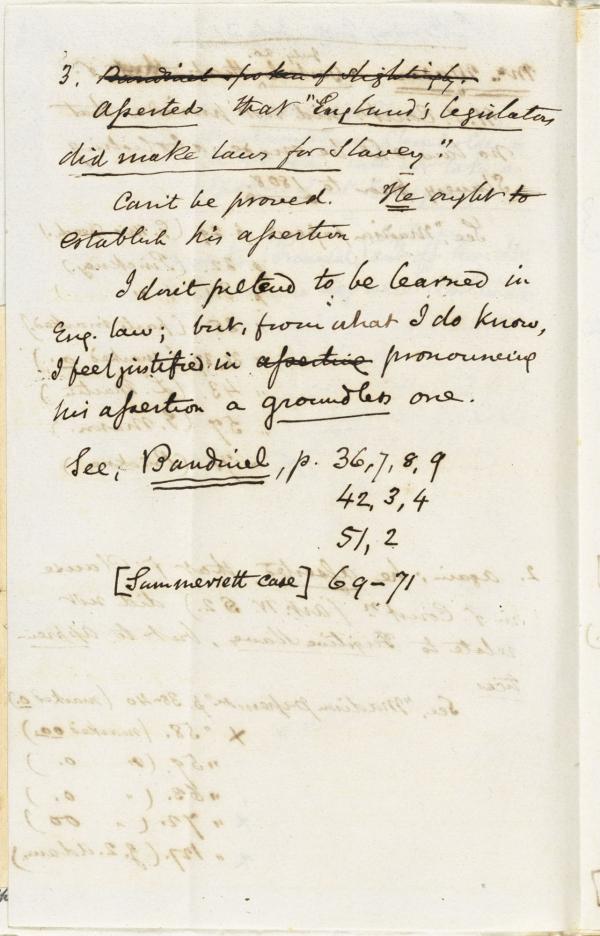 3. Bandinel spoken of slightingly.
Asserted that "England's legislators
did make laws for Slavey".
Can't be proved. He ought to
establish his assertion
I don't pretend to be learned in
Eng. law; but, from what I do know,
I feel justified in asserting pronouncing
his assertion a groundless one.
See, Bandinel, p. 36,7,8,9
42,3,4
51,2
[Sammersett case] 69-71